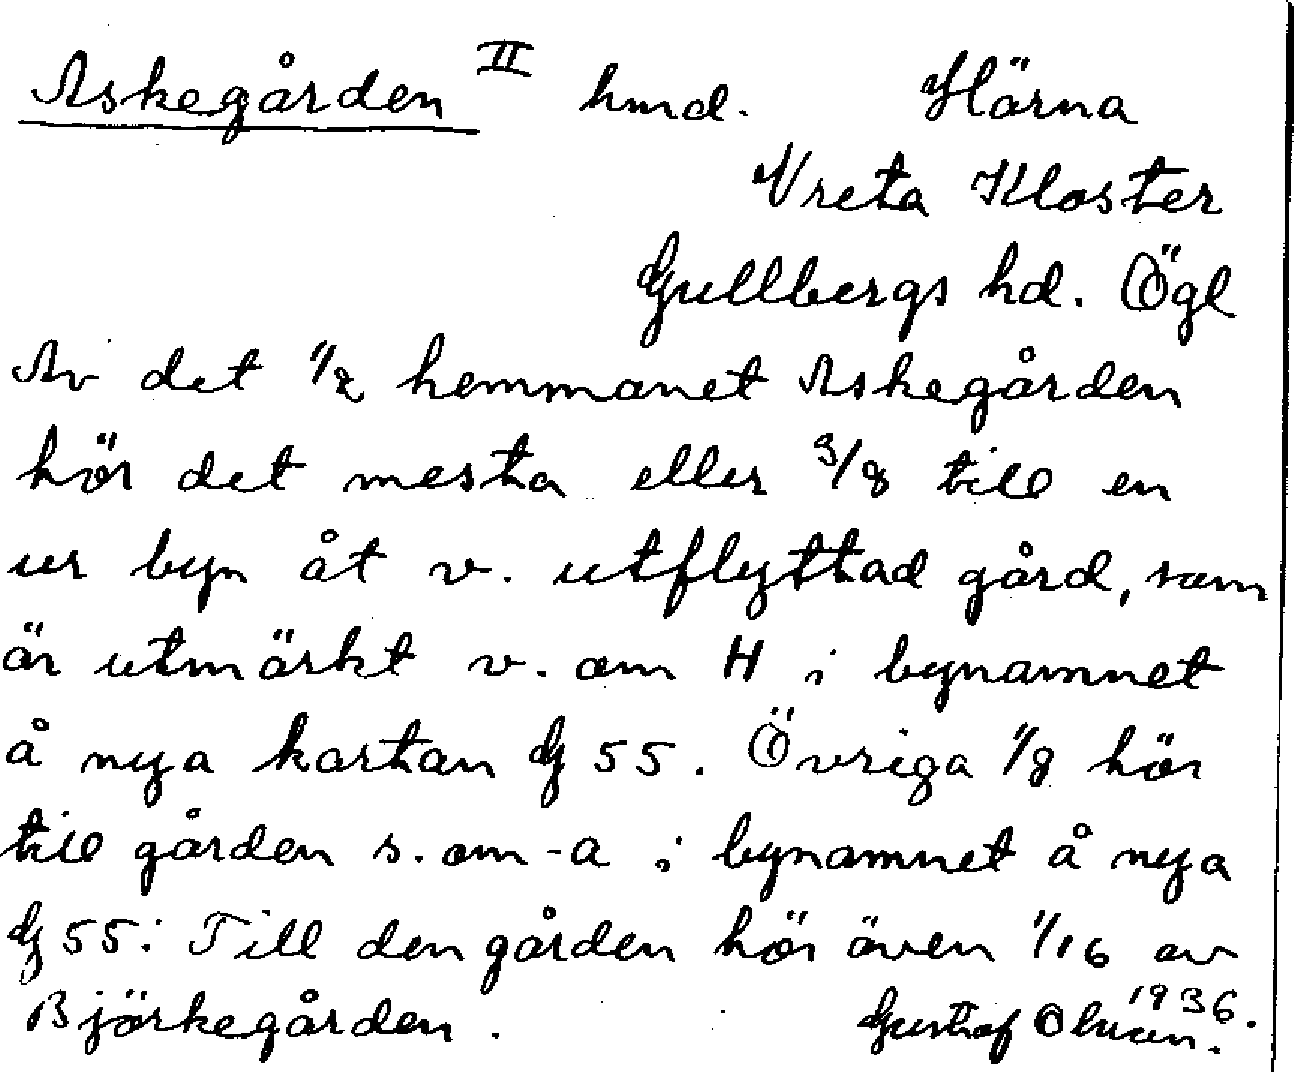 Askegården II hmd. Härna
Vreta Kloster
Gullbergs hd. Ögl
Av det 1/2 hemmanet Askegården
hör det mesta eller 3/8 till en
ur byn åt v. utflyttad gård, som
är utmärkt v. om H i bynamnet
å nya kartan G 55. Övriga 1/8 hör
till gården s. om -a i bynamnet å nya
G 55. Till den gården hör även 1/16 av
Björkegården. Gustaf 1936.